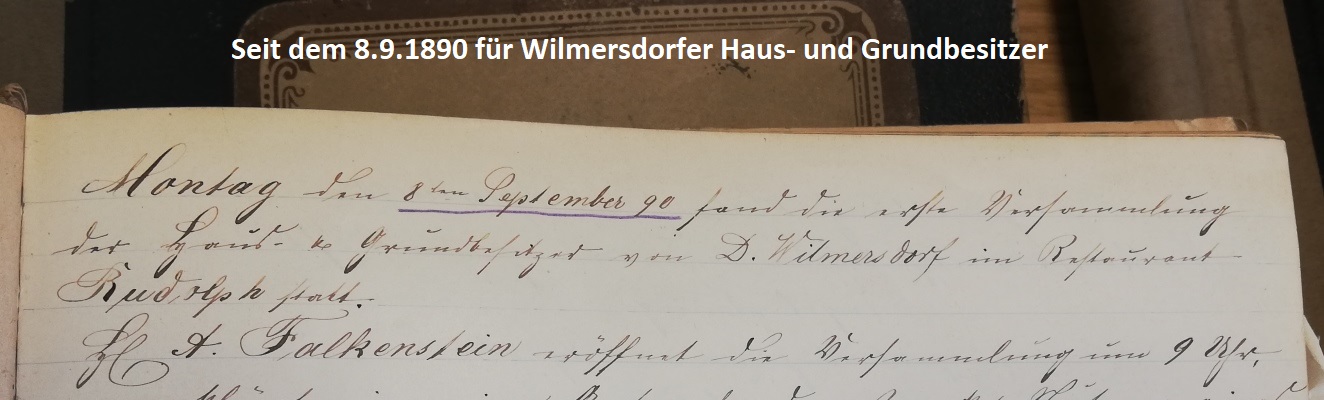 Seit dem 8.9.1890 für Wilmersdorfer Haus- und Grundbesitzer
Montag den 8ten September 90 fand die erste Versammlung
der Haus- & Grundbesitzer von D. Wilmersdorf im Restaurant
Rudolph statt.
A. Falkenstein eröffnet die Versammlung um 9 Uhr,